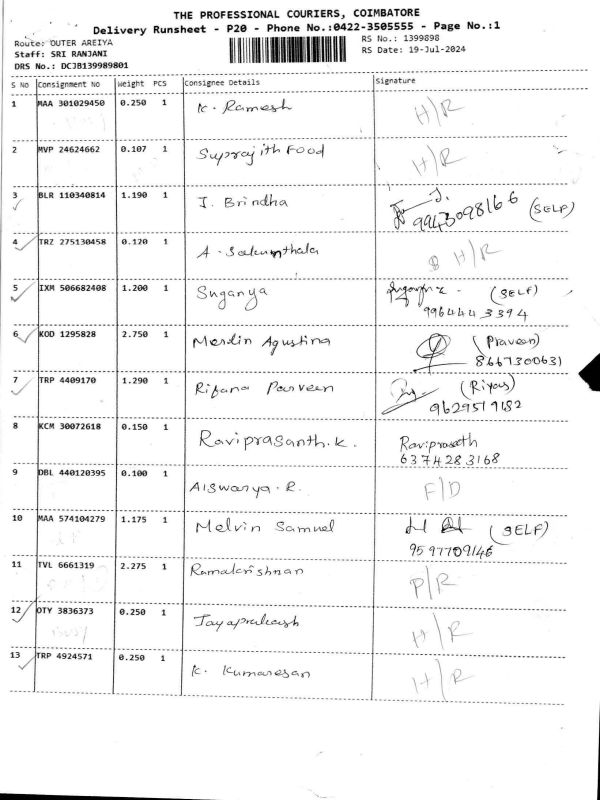 THE PROFESSIONAL COURIERS, COIMBATORE
Delivery Runsheet - P20 - Phone No.:0422-3505555 - Page No.:1
Route: OUTER AREIYA RS No.: 1399898
Staff: SRI RANJANI RS Date: 19-Jul-2024
DRS No.: DCJB139989801
S No Consignment No Weight PCS Consignee Details Signature
1 MAA 301029450 0.250 1 K. Ramesh H/R
2 MVP 24624662 0.107 1 Suprajith Food H/R
3 BLR 110340814 1.190 1 J. Brindha J.
9943098166 (SELF)
4 TRZ 275130458 0.120 1 A. Sakunthala H/R
5 IXM 506682408 1.200 1 Suganya (SELF)
9964443394
6 KOD 1295828 2.750 1 Merdin Agustina (Praveen)
8667300631
7 TRP 4409170 1.290 1 Rifana Parveen (Riyas)
9629519182
8 KCM 30072618 0.150 1 Raviprasanth.K. Raviprasath
6374283168
9 DBL 440120395 0.100 1 Aiswarya.R. F/D
10 MAA 574104279 1.175 1 Melvin Samuel (SELF)
9597709146
11 TVL 6661319 2.275 1 Ramakrishnan P/R
12 OTY 3836373 0.250 1 Jayaprakash H/R
Busy
13 TRP 4924571 0.250 1 K. Kumaresan H/R